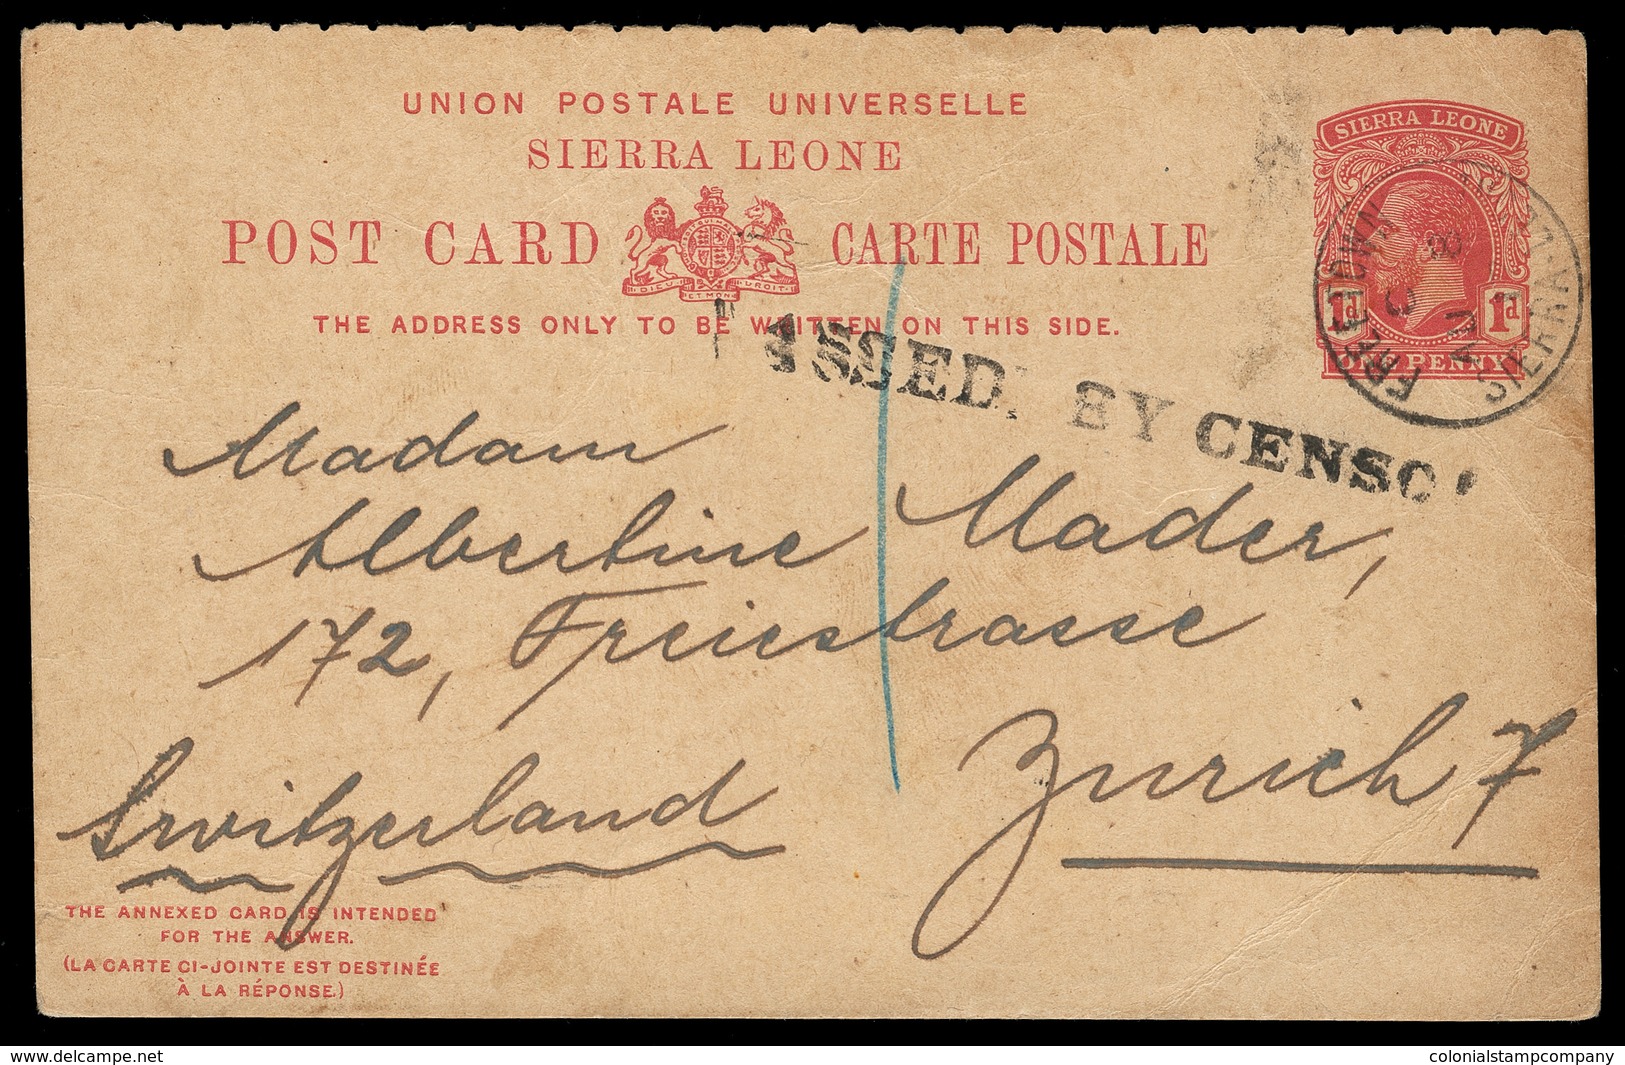 UNION POSTALE UNIVERSELLE
SIERRA LEONE
POST CARD CARTE POSTALE
DIEU ET MON DROIT
THE ADDRESS ONLY TO BE WRITTEN ON THIS SIDE.
SIERRA LEONE
1d 1d
ONE PENNY
FREETOWN
SIERRA
AU
PASSED BY CENSO
Madam
Albertine Mader,
172, Freiestrasse
Zurich 7
Switzerland
THE ANNEXED CARD IS INTENDED
FOR THE ANSWER.
(LA CARTE CI-JOINTE EST DESTINÉE
À LA RÉPONSE.)
www.delcampe.net
colonialstampcompany